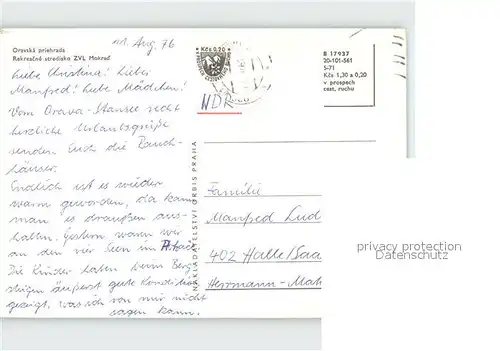 21. Aug. 76
Oravská priehrada
Rekreačné stredisko ZVL Mokraď
Liebe Christina! Lieber
Manfred! Liebe Mädchen!
Vom Orava-Stausee recht
herzliche Urlaubsgrüße
senden Euch die Bauch-
häuser.
Endlich ist es wieder
warm geworden, da kann
man es draußen aus-
halten. Gestern waren wir
an den vier Seen im
Die Kinder haben beim Berg-
steigen äußerst gute Kondition
gezeigt, was ich von mir nicht
sagen kann.
Kčs 0,20
B 17937
20-101-561
S-71
Kčs 1,30 a 0,20
v prospech
zast. ruchu
WDR
NAKLADATELSTVÍ ORBIS PRAHA
Familie
Manfred Lud
402 Halle/Saa
Herrmann-Mat
privacy protection
Datenschutz